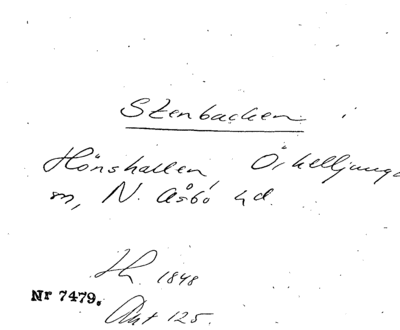 Stenbacken i
Hönshallen, Örkelljunga
sn, N. Åsbo hd.
Lh. 1848
Nr 7479.
Akt 125.